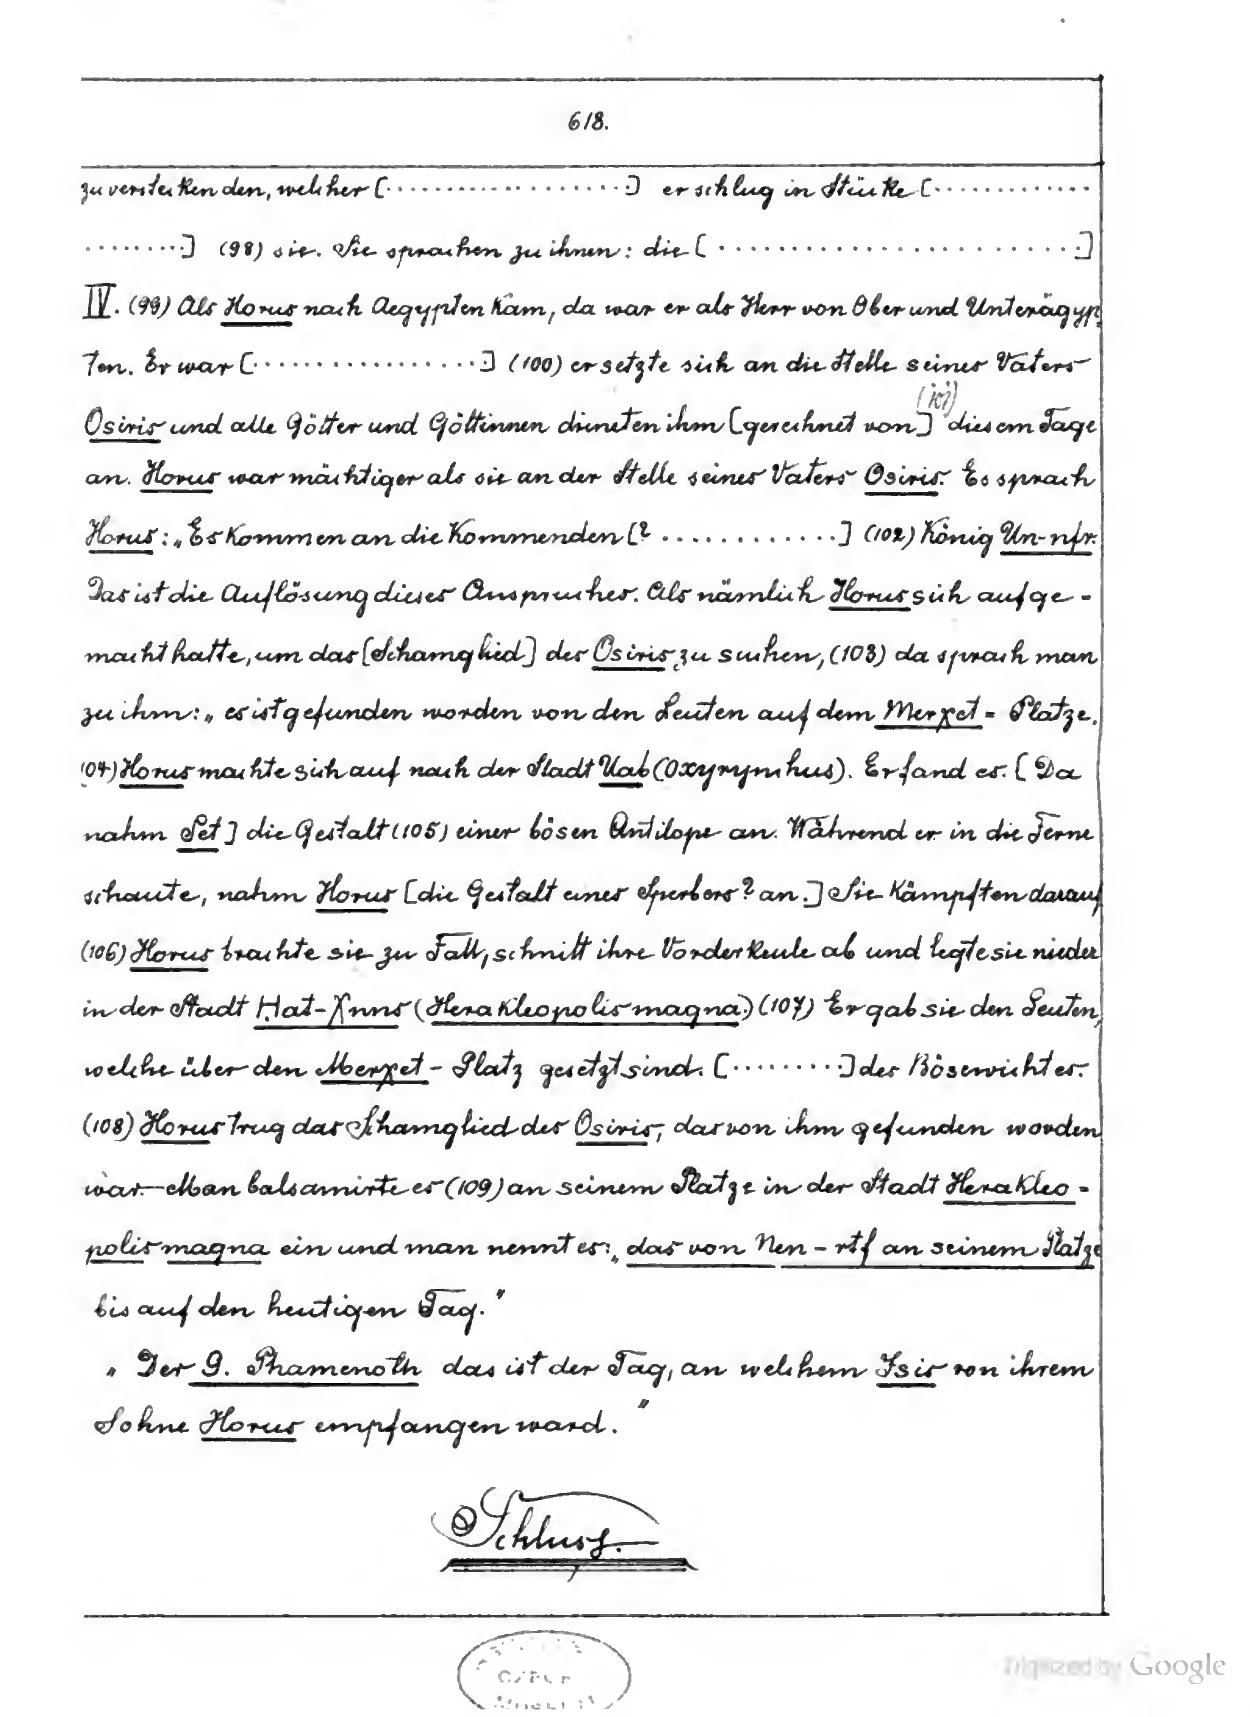 618.
zu verstecken den, welcher [····················] er schlug in Stücke [··············
·········] (98) sie. Sie sprachen zu ihnen: die [························]
IV. (99) Als Horus nach Aegypten kam, da war er als Herr von Ober und Unterägyp
ten. Er war [·················] (100) er setzte sich an die Stelle seines Vaters
Osiris und alle Götter und Göttinnen dieneten ihm [gerechnet von] diesem Tage
an. Horus war mächtiger als sie an der Stelle seines Vaters Osiris. Es sprach
Horus: „Es kommen an die Kommenden [? ············] (102) König Un-nfr.
Das ist die Auflösung dieses Anspruches. Als nämlich Horus sich aufge-
macht hatte, um das [Schamglied] des Osiris zu suchen, (103) da sprach man
zu ihm: „es ist gefunden worden von den Leuten auf dem Merχet = Platze.
(04) Horus machte sich auf nach der Stadt Uab (Oxyrynchus). Er fand es. [Da
nahm Set] die Gestalt (105) einer bösen Antilope an. Während er in die Ferne
schaute, nahm Horus [die Gestalt eines Sperbers? an.] Sie kämpften darauf
(106) Horus brachte sie zu Fall, schnitt ihre Vorderkeule ab und legte sie nieder
in der Stadt Hat-χnns (Herakleopolis magna.) (107) Er gab sie den Leuten,
welche über den Merχet - Platz gesetzt sind. [·········] des Bösewichtes.
(108) Horus trug das Schamglied des Osiris, das von ihm gefunden worden
war. — Man balsamirte es (109) an seinem Platze in der Stadt Herakleo-
polis magna ein und man nennt es: „das von Nen - rtf an seinem Platze
bis auf den heutigen Tag."
„Der 9. Phamenoth das ist der Tag, an welchem Isis von ihrem
Sohne Horus empfangen ward."
Schluss.
Digitized by Google